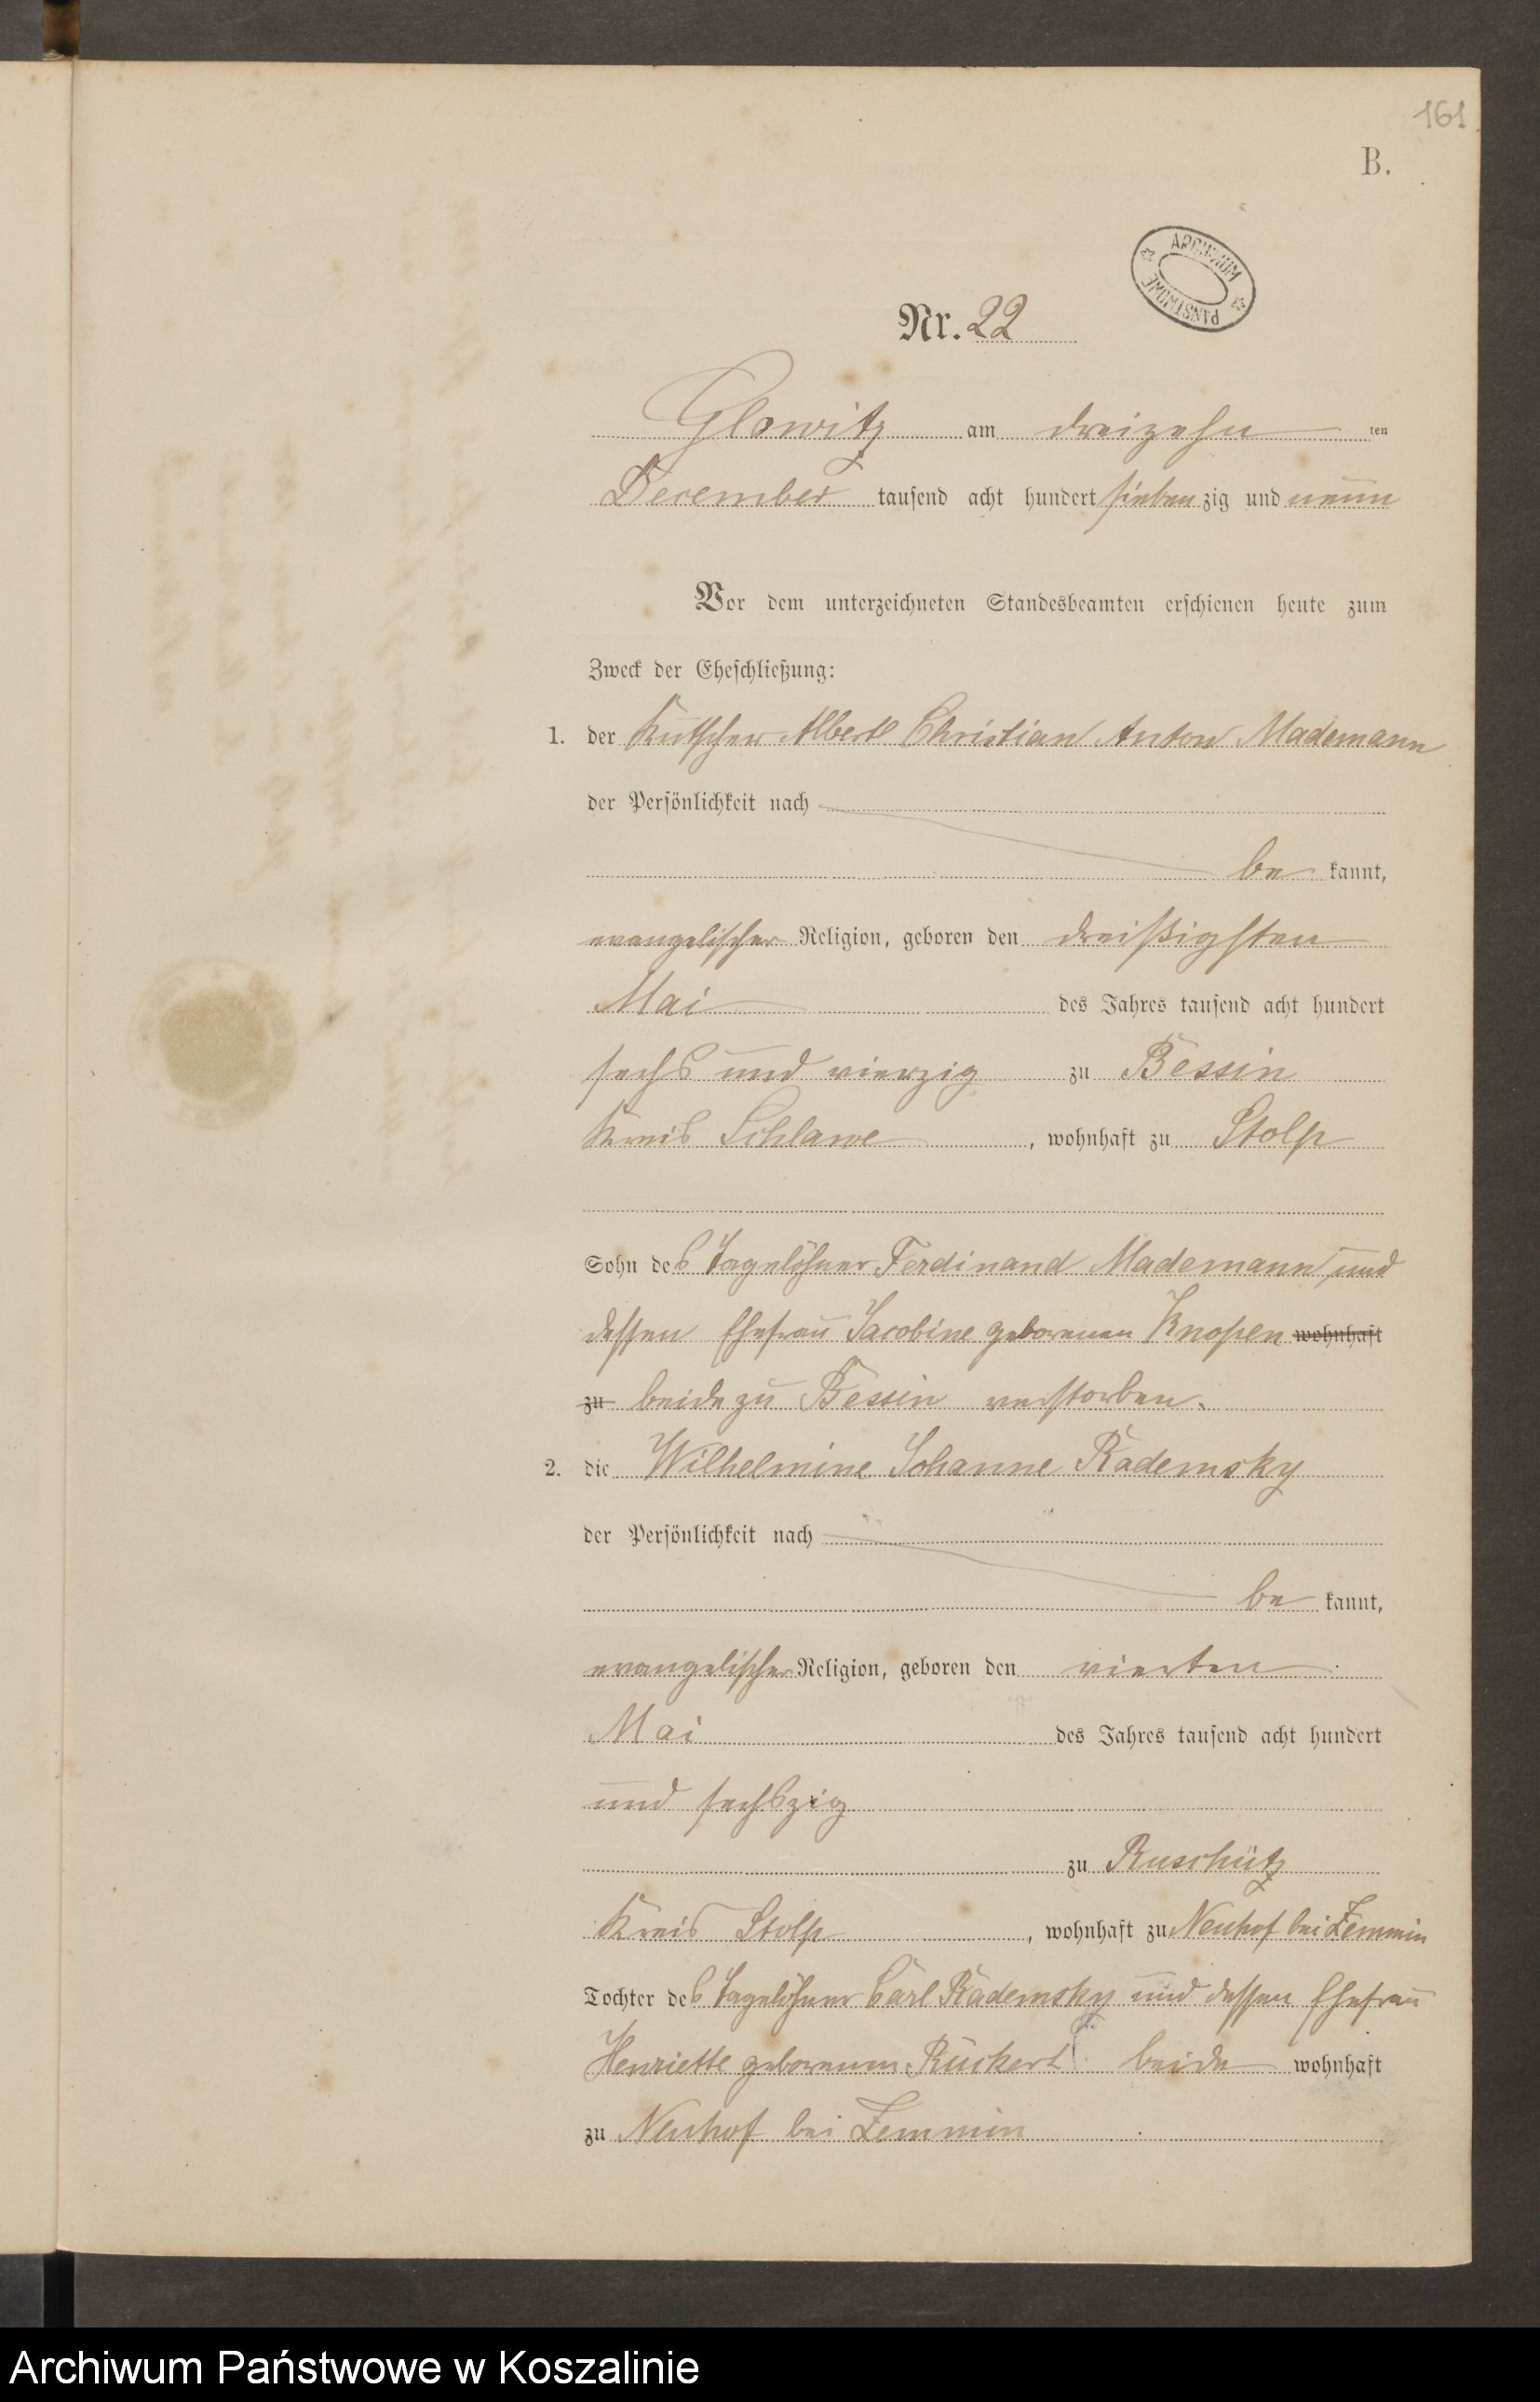 161
B.
ARCHIWUM PAŃSTWOWE
Nr. 22
Glowitz am dreizehn ten
December tausend acht hundert siebenzig und neun
Vor dem unterzeichneten Standesbeamten erschienen heute zum
Zweck der Eheschließung:
1. der Kutscher Albert Christian Anton Mademann
der Persönlichkeit nach
be kannt,
evangelischer Religion, geboren den dreißigsten
Mai des Jahres tausend acht hundert
sechs und vierzig zu Bessin
Kreis Schlawe, wohnhaft zu Stolp
Sohn des Tagelöhner Ferdinand Mademann und
dessen Ehefrau Jacobine geborenen Knopen wohnhaft
zu beide zu Bessin verstorben.
2. die Wilhelmine Johanne Rademsky
der Persönlichkeit nach
be kannt,
evangelischer Religion, geboren den vierten
Mai des Jahres tausend acht hundert
und sechszig
zu Ruschütz
Kreis Stolp, wohnhaft zu Neuhof bei Zemmin
Tochter des Tagelöhner Carl Rademsky und dessen Ehefrau
Henriette geborenen Rückert beide wohnhaft
zu Neuhof bei Zemmin
Archiwum Państwowe w Koszalinie